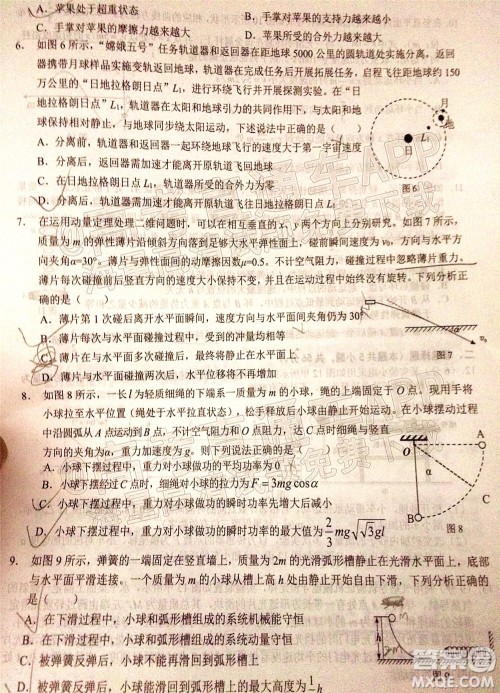 A、苹果处于超重状态
B、手掌对苹果的支持力越来越小
C、手掌对苹果的摩擦力越来越大
D、苹果所受的合外力越来越大
6、如图 6 所示，“嫦娥五号”任务轨道器和返回器在距地球 5000 公里的圆轨道处实施分离，返回
器携带月球样品实施变轨返回地球，轨道器在完成任务后开展拓展任务，启程飞往距地球约 150
万公里的“日地拉格朗日点”L₁，进行绕飞并开展探测实验。在“日
地拉格朗日点”L₁，轨道器在太阳和地球引力的共同作用下，与太阳和地
球保持相对静止，与地球同步绕太阳运动，下述说法中正确的是（ ）
A、分离前，轨道器和返回器一起环绕地球飞行的速度大于第一宇宙速度
B、分离后，返回器需加速才能离开原轨道飞回地球
C、在日地拉格朗日点 L₁，轨道器所受的合外力为零
D、分离后，轨道器需加速才能离开原轨道飞向日地拉格朗日点 L₁
月
地
L₁
日
图 6
7、在运用动量定理处理二维问题时，可以在相互垂直的 x、y 两个方向上分别研究。如图 7 所示，
质量为 m 的弹性薄片沿倾斜方向落到足够大水平弹性面上，碰前瞬间的速度为 v₀，方向与水平方
向夹角α=30°。薄片与弹性面间的动摩擦因数μ=0.5。不计空气阻力，碰撞过程中忽略薄片重力。
薄片每次碰撞前后竖直方向的速度大小保持不变，并且在运动过程中始终没有旋转。下列分析正
确的是（ ）
A、薄片第 1 次碰后离开水平面瞬间，速度方向与水平面间夹角仍为 30°
B、薄片每次与水平面碰撞过程中，受到的冲量均相等
C、薄片在与水平面多次碰后，最终将静止在水平面上
D、薄片与水平面碰撞两次后，水平位移不再增加
图 7
8、如图 8 所示，一长 l 为轻质细绳的下端系一质量为 m 的小球，绳的上端固定于 O 点，现用手将
小球拉至水平位置（绳处于水平拉直状态），松手释放后小球由静止开始运动。在小球摆动过程
中沿圆弧从 A 点运动到 B 点，不计空气阻力和 O 点处阻力，达 C 点时细绳与竖直
方向的夹角为α，重力加速度为 g。则下列说法正确的是（ ）
A、小球下摆过程中，重力对小球做功的平均功率为 0
B、小球下摆经过 C 点时，细绳对小球的拉力为 F = 3mg cos α
C、小球下摆过程中，重力对小球做功的瞬时功率先增大后减小
D、小球下摆过程中，重力对小球做功的瞬时功率的最大值为 2/3 mg√(√3gl)
O
A
α
C
B
图 8
9、如图 9 所示，弹簧的一端固定在竖直墙上，质量为 2m 的光滑弧形槽静止在光滑水平面上，底部
与水平面平滑连接。一个质量为 m 的小球从槽上高 h 处由静止开始自由下滑，下列分析正确的
是（ ）
A、在下滑过程中，小球和弧形槽组成的系统机械能守恒
B、在下滑过程中，小球和弧形槽组成的系统动量守恒
C、被弹簧反弹后，小球不能再滑回到弧形槽上
D、被弹簧反弹后，小球能滑回到弧形槽上，且上升的最大高度为
h
答案圈
MXQE.COM